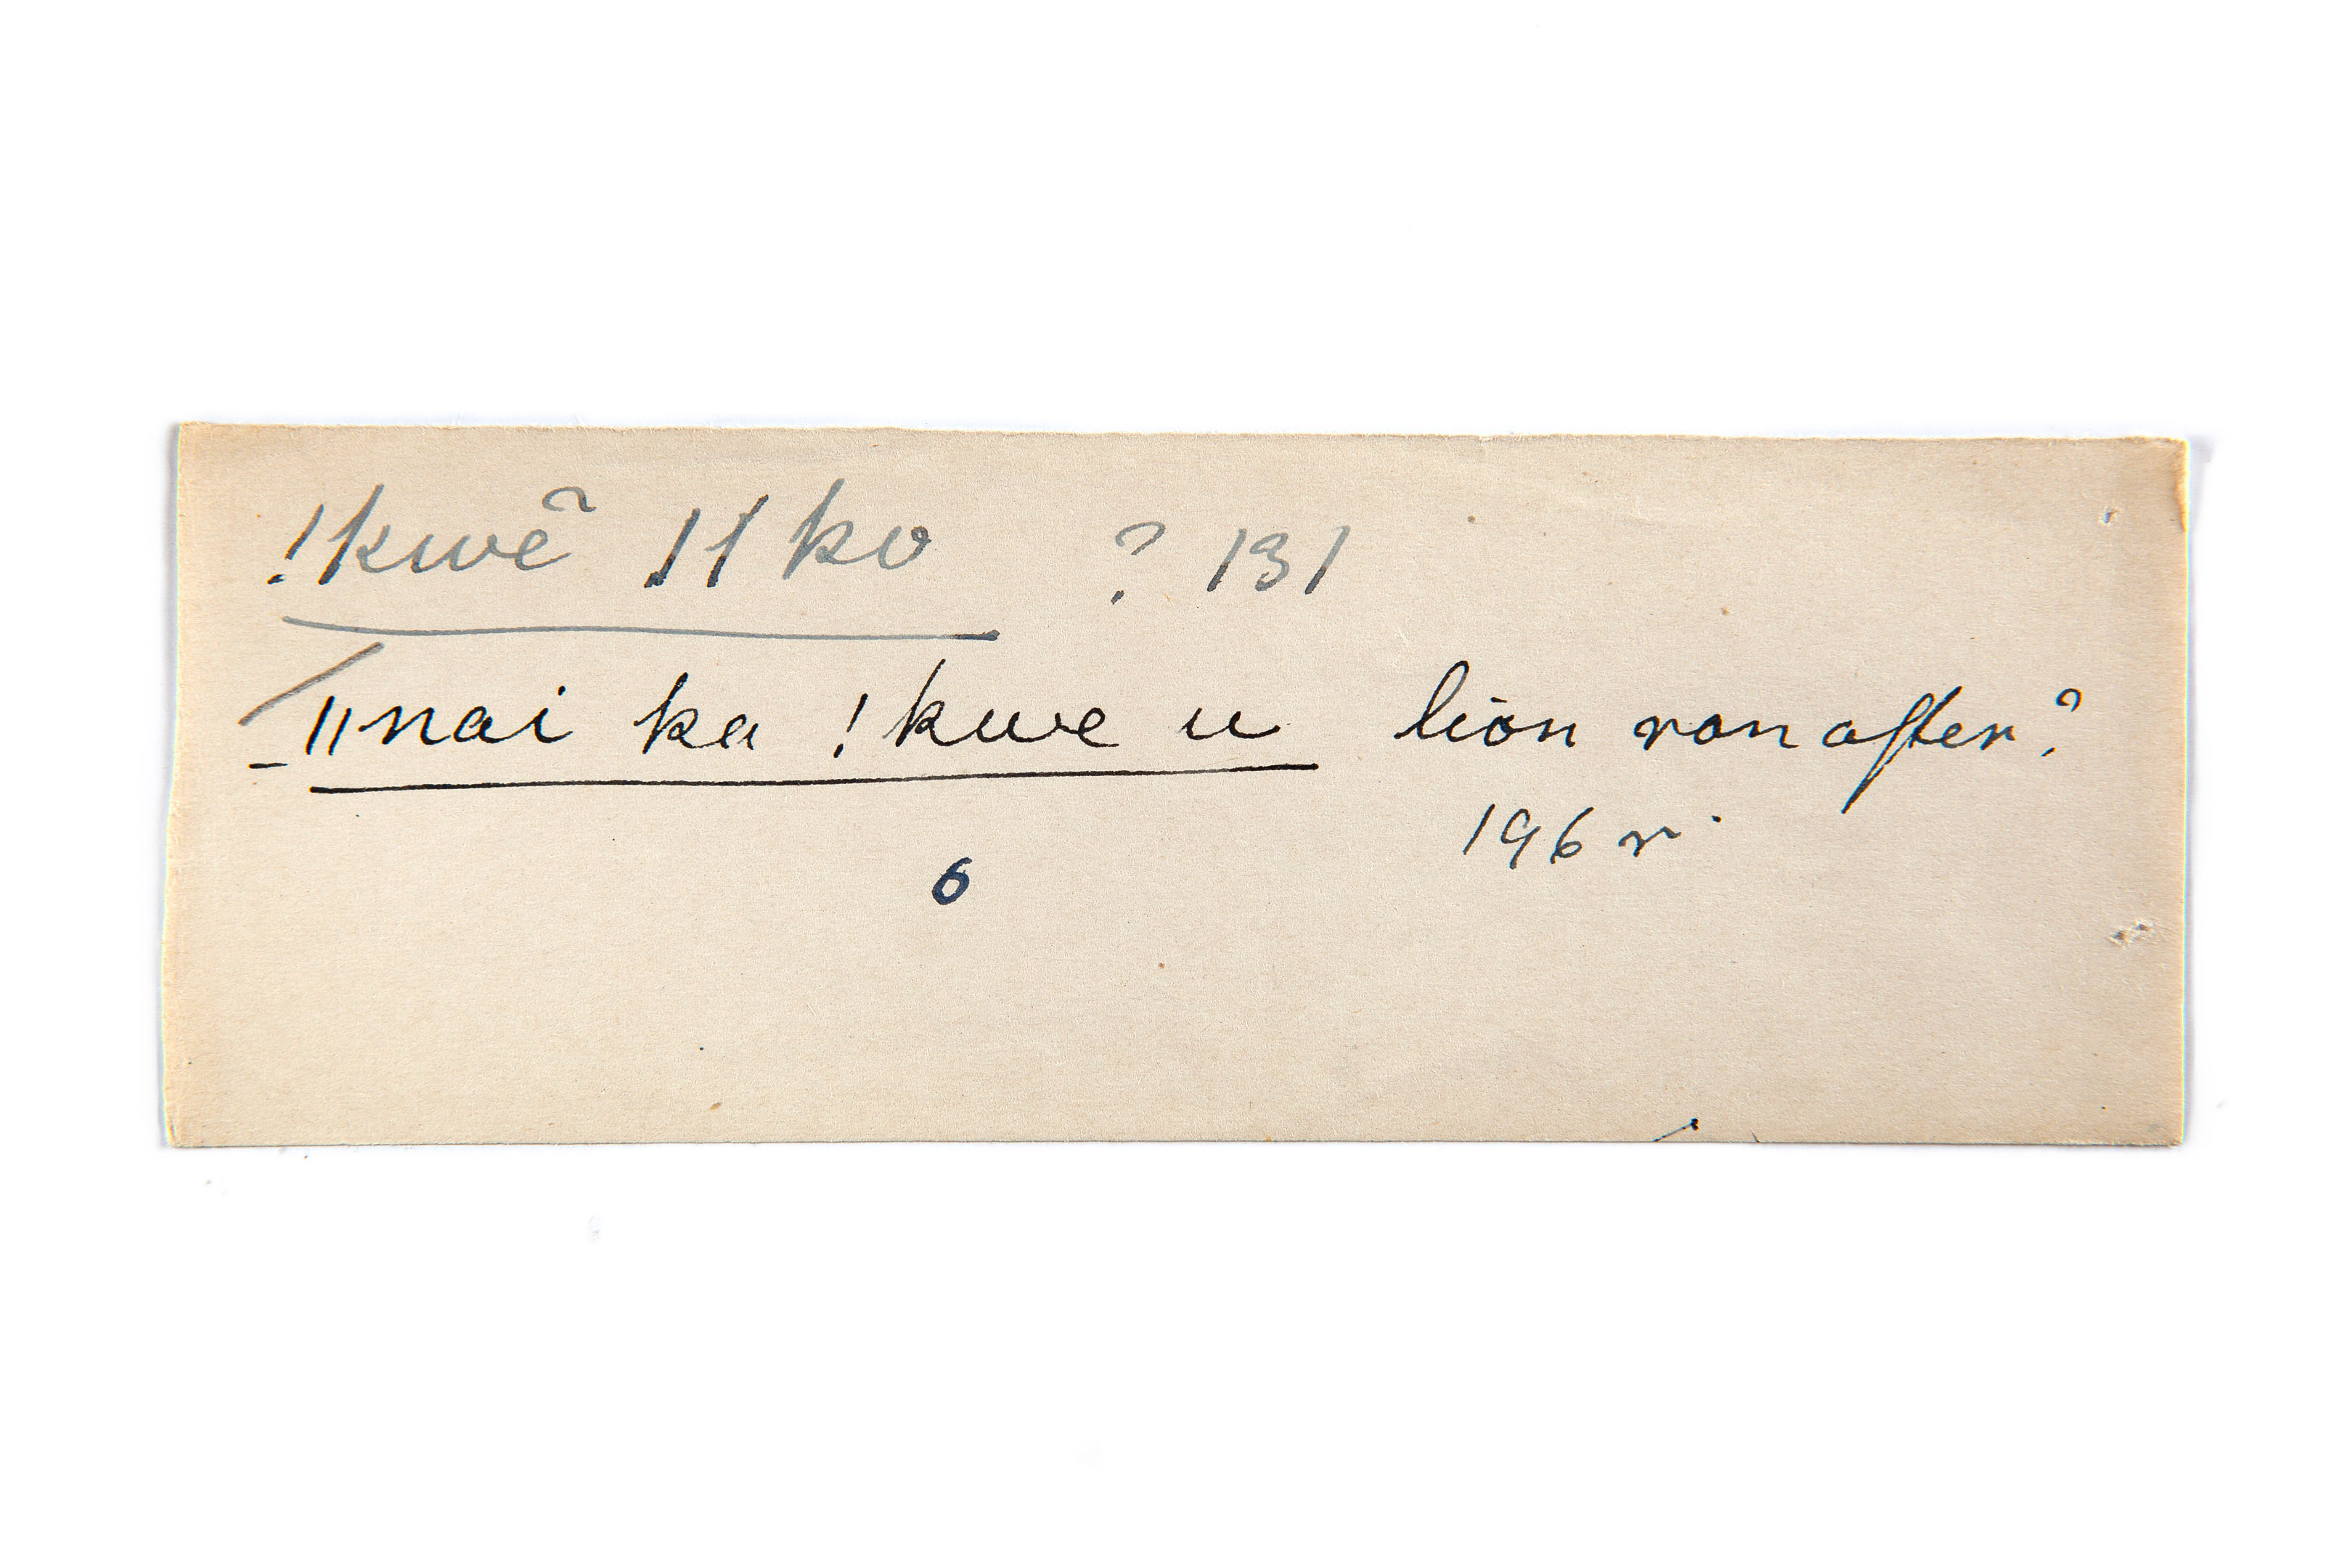 !kwẽ ǁko ? 131
ǁnai ka !kwe u lion ran after?
196 r.
6